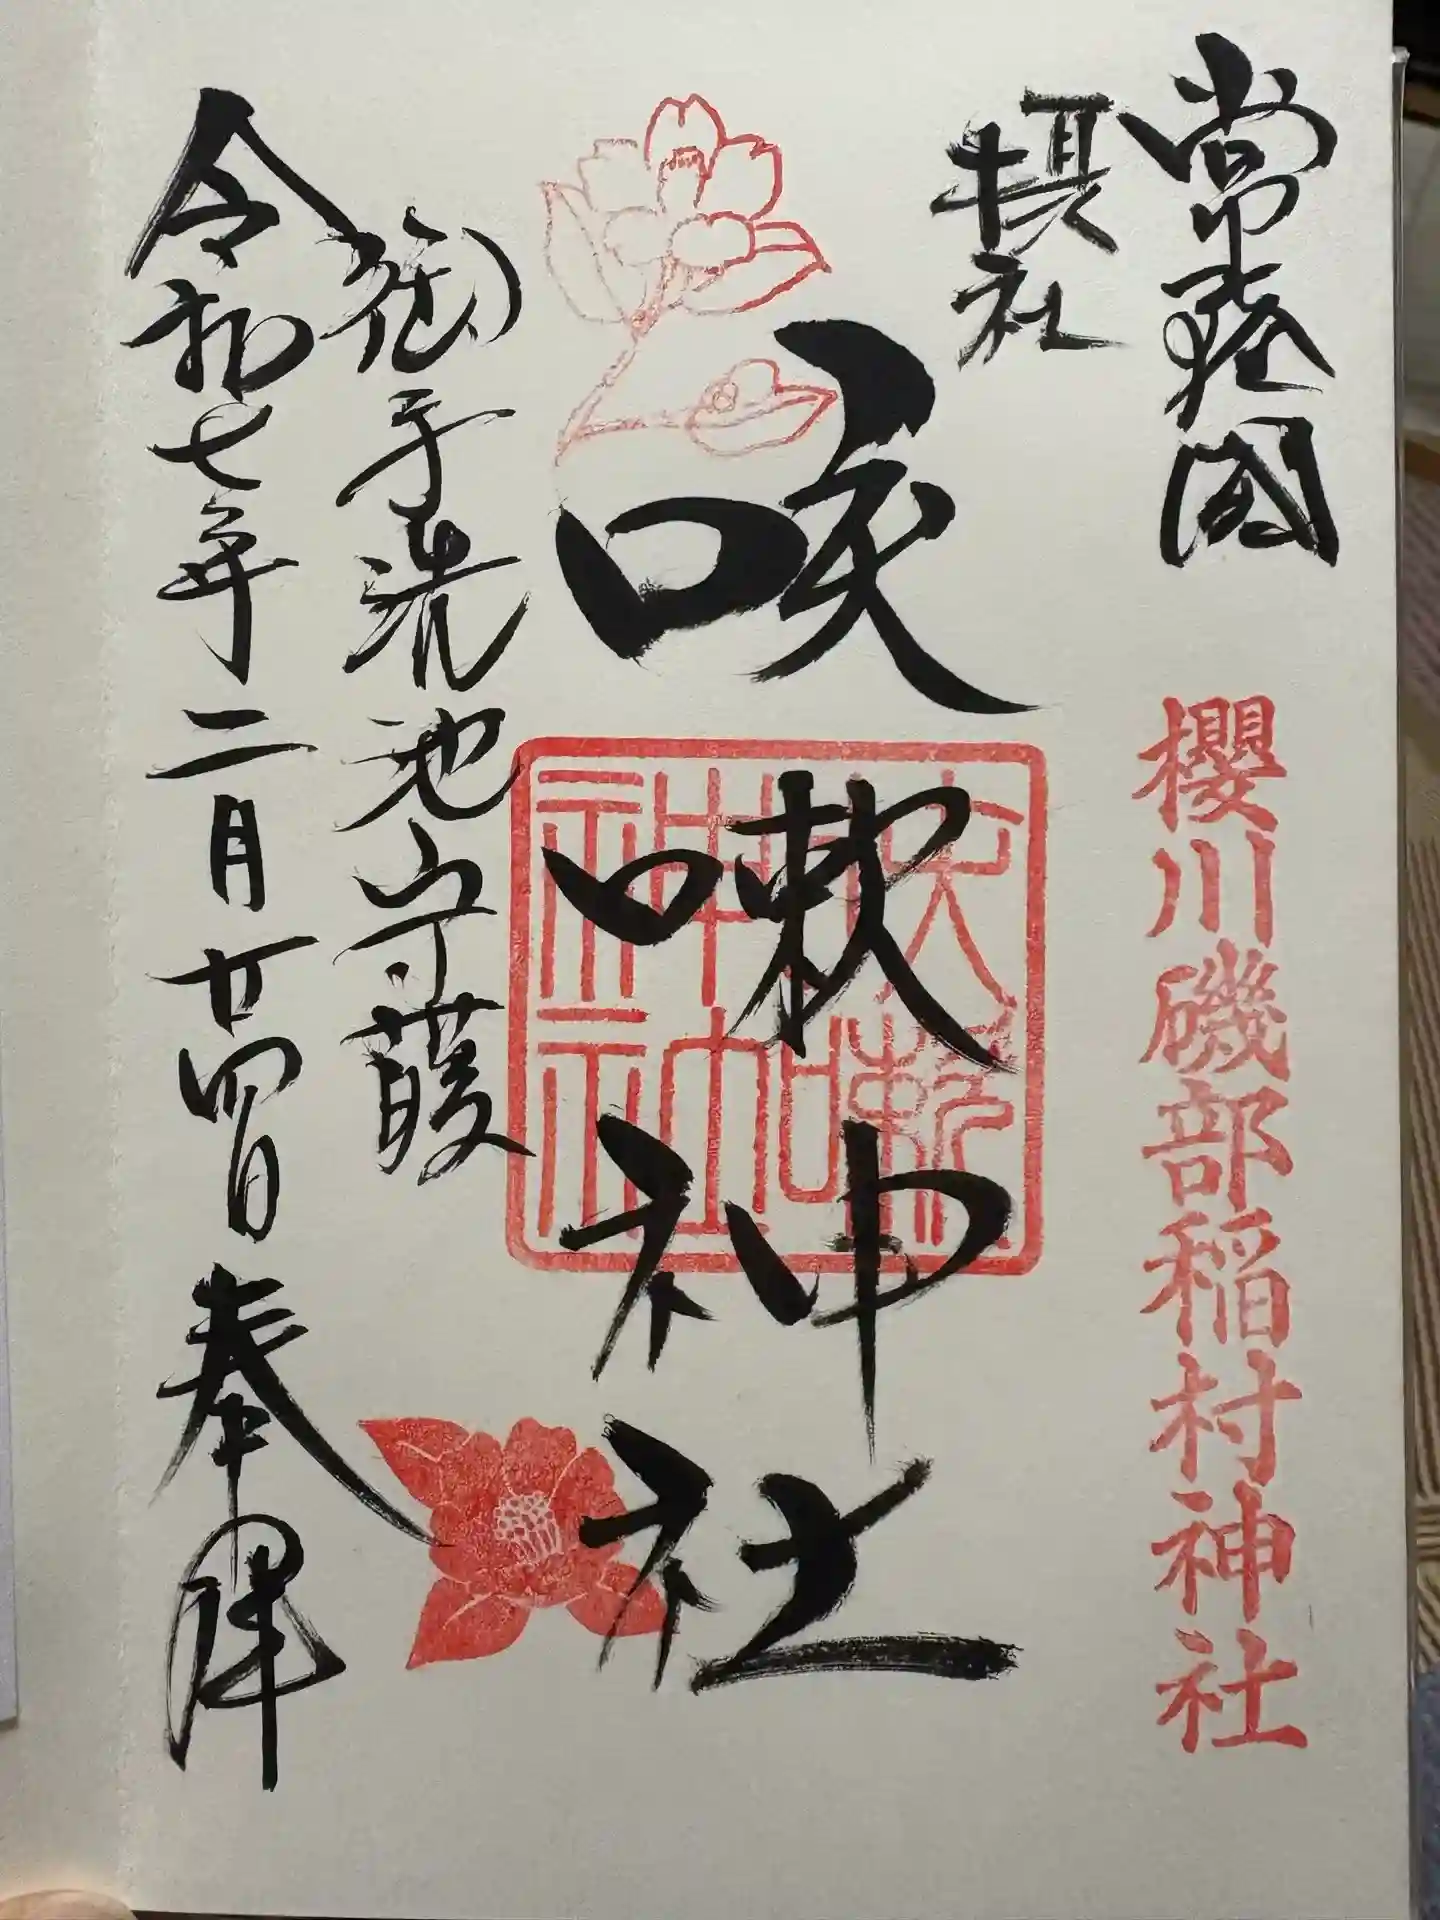 常陸國
櫻川磯部稲村神社
摂社
咲嗽神社
御手洗池守護
令和七年二月廿四日奉拝